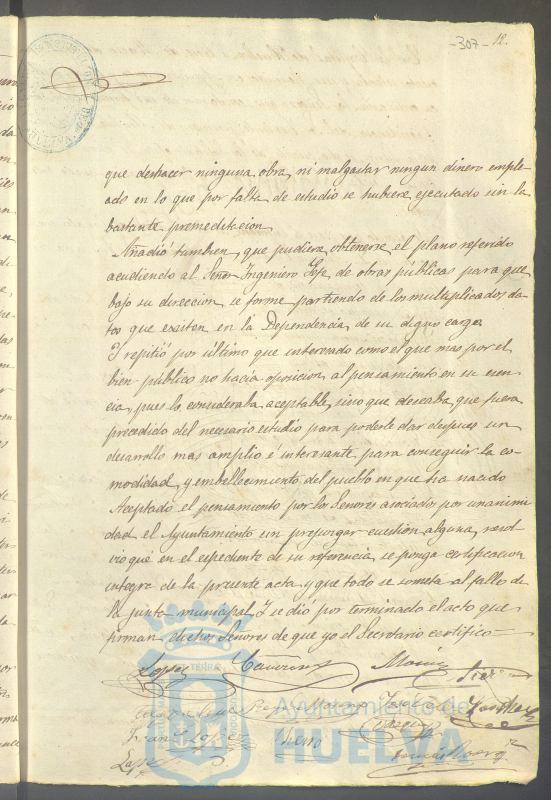 -307- 12.
que deshacer ninguna obra, ni malgastar ningun dinero emple
ado en lo que por falta de estudio se hubiera ejecutado sin la
bastante premeditacion
Añadió tambien que pudiera obtenerse el plano referido
acudiendo al Señor Ingeniero Gefe de obras públicas para que
bajo su direccion se forme partiendo de los multiplicados da-
tos que existen en la Dependencia de su digno cargo
Y repitió por último que interesado como el que mas por el
bien publico no hacia oposicion al pensamiento en su esen-
cia, pues lo consideraba aceptable, sino que deseaba que fuera
precedido del necesario estudio para poderle dar despues un
desarrollo mas amplio é interesante para conseguir la co-
modidad y embellecimiento del pueblo en que ha nacido
Aceptado el pensamiento por los Señores asociados por unanimi
dad el Ayuntamiento sin prejuzgar cuestion alguna, resol
vió que en el espediente de su referencia se ponga certificacion
integra de la presente acta y que todo se someta al fallo de
la junta municipal. Y se dió por terminado el acto que
firman dichos Señores de que yo el Secretario certifico
Lopez
Lopez
Ayuntamiento de
HUELVA